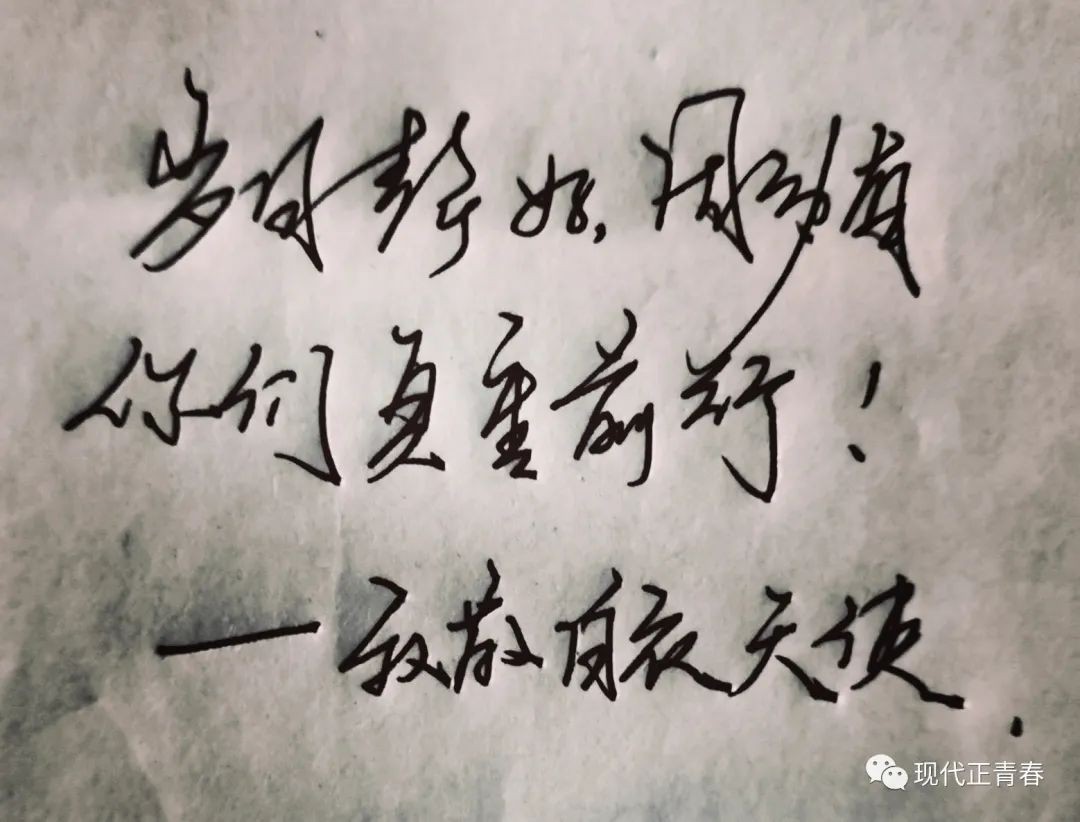 岁月静好，因为有
你们负重前行！
—致敬白衣天使.
现代正青春